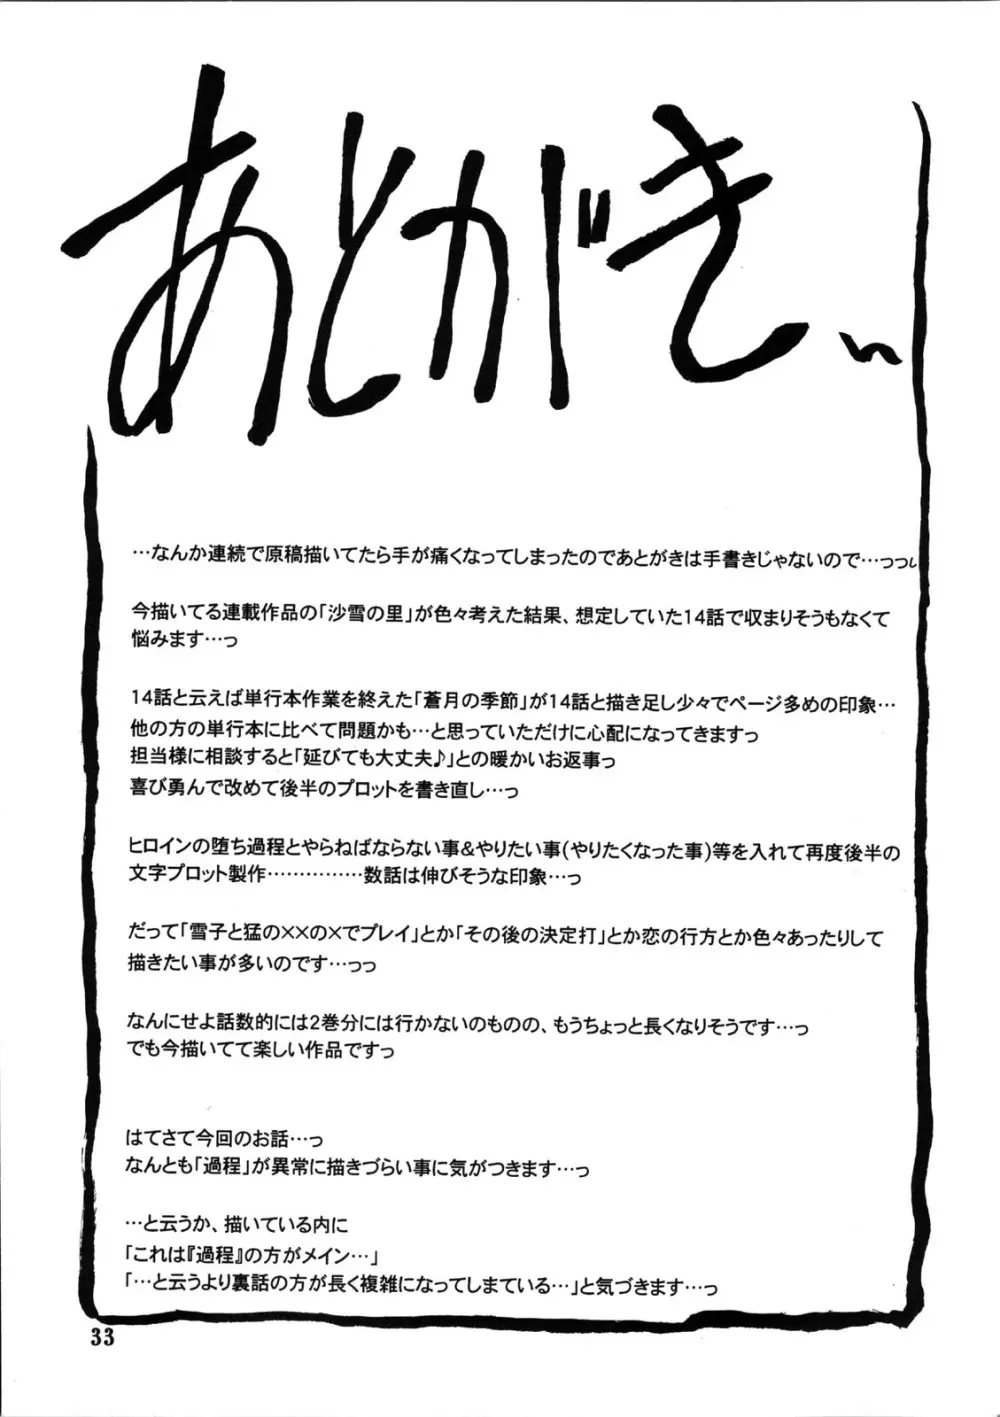 あとがきぃ
…なんか連続で原稿描いてたら手が痛くなってしまったのであとがきは手書きじゃないので…っつぃ
今描いてる連載作品の「沙雪の里」が色々考えた結果、想定していた14話で収まりそうもなくて
悩みます…っ
14話と云えば単行本作業を終えた「蒼月の季節」が14話と描き足し少々でページ多めの印象…
他の方の単行本に比べて問題かも…と思っていただけに心配になってきますっ
担当様に相談すると「延びても大丈夫♪」との暖かいお返事っ
喜び勇んで改めて後半のプロットを書き直し…っ
ヒロインの堕ち過程とやらねばならない事&やりたい事(やりたくなった事)等を入れて再度後半の
文字プロット製作……………数話は伸びそうな印象…っ
だって「雪子と猛の××の×でプレイ」とか「その後の決定打」とか恋の行方とか色々あったりして
描きたい事が多いのです…っっ
なんにせよ話数的には2巻分には行かないのものの、もうちょっと長くなりそうです…っ
でも今描いてて楽しい作品ですっ
はてさて今回のお話…っ
なんとも「過程」が異常に描きづらい事に気がつきます…っ
…と云うか、描いている内に
「これは『過程』の方がメイン…」
「…と云うより裏話の方が長く複雑になってしまている…」と気づきます…っ
33